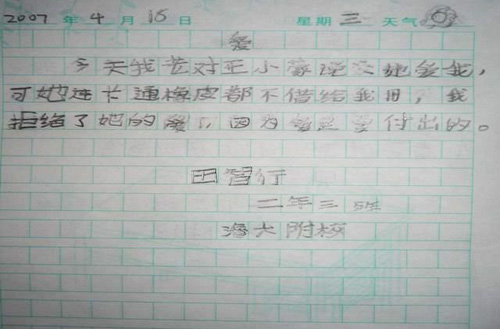 2007年4月15日 星期三 天气
爱
今天我若对王小 她爱我,
可她连卡通橡皮都不借给我用,我
拒绝了她的爱 因为 是要付出的。
田智行
二年三班
海大附校